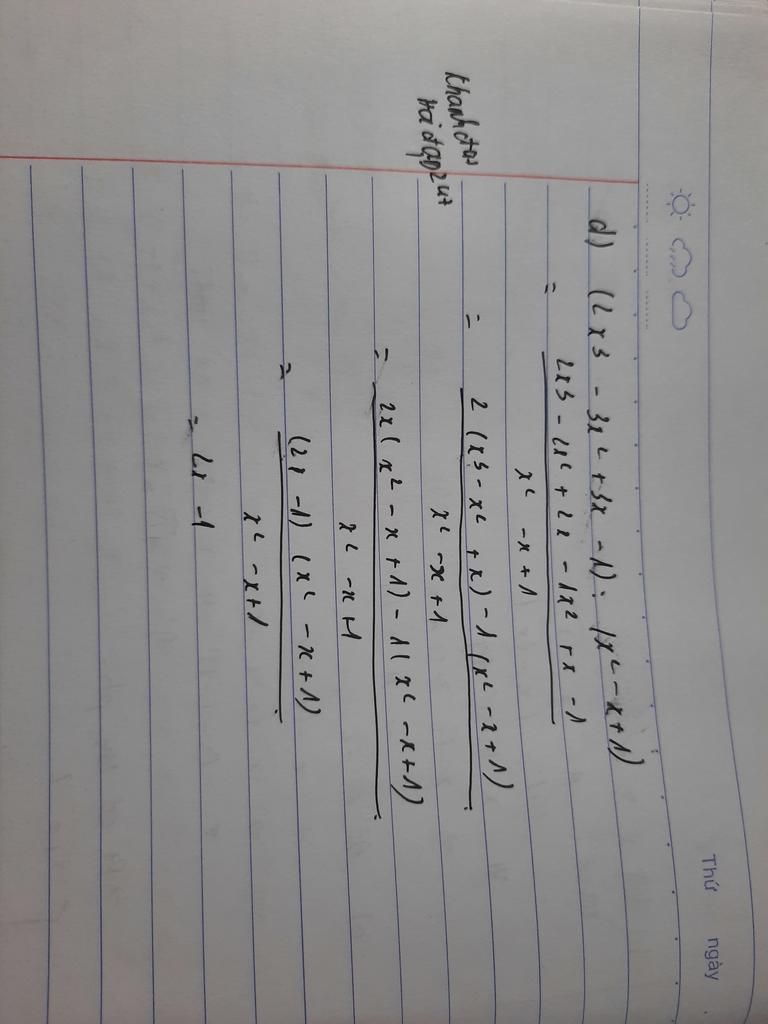 Thứ ngày
d) (2x³ - 3x² + 3x - 1) : (x² - x + 1)
= 2x³ - 2x² + 2x - 1x² + x - 1
x² - x + 1
= 2 (x³ - x² + x) - 1 (x² - x + 1)
x² - x + 1
= 2x (x² - x + 1) - 1 (x² - x + 1)
x² - x + 1
= (2x - 1) (x² - x + 1)
x² - x + 1
= 2x - 1